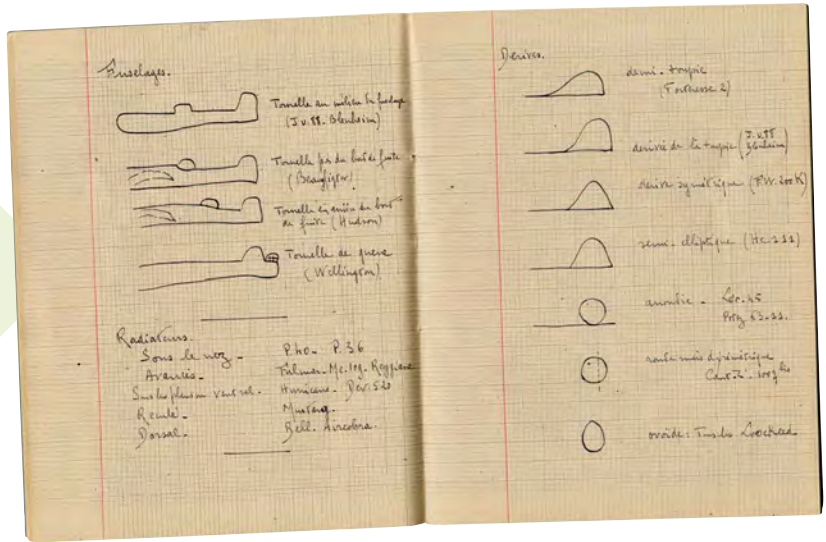 Fuselages.
Tourelle au milieu du fuselage
(J.u.88. Blenheim)
Tourelle près du bord de fuite
(Beaufighter)
Tourelle en arrière du bord
de fuite (Hudson)
Tourelle de queue
(Wellington)
Radiateurs.
Sous le nez - P.40 - P.36
Avancés - Fulmar. Me.109. Reggiane
Sous les plans ou ventral - Hurricane - Dev. 520
Reculé - Mustang.
Dorsal - Bell. Aircobra.
Dérives.
demi-toupie
(Forteresse 2)
dérivée de la toupie (J.u.88
Blenheim)
dérive symétrique (F.W. 200K)
semi-elliptique (He.111)
arrondie - Léo.45
Potez 63-11.
ronde mais dysimétrique
Cant Z. 1007 bis
ovoïde: Tous les Loockeed